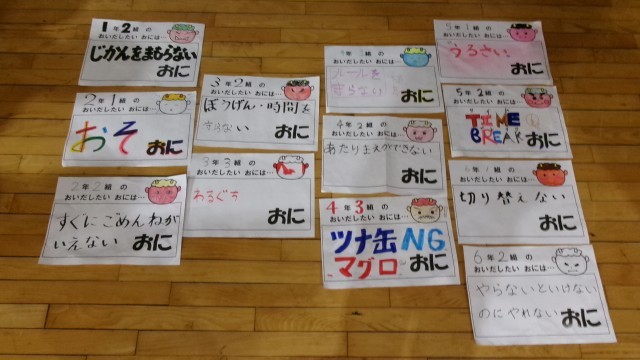 1年2組の
おいだしたい おには…
じかんをまもらない
おに
2年1組の
おいだしたい おには…
おそ おに
2年2組の
おいだしたい おには…
すぐにごめんねが
いえない おに
3年2組の
おいだしたい おには…
ぼうげん・時間を
守らない おに
3年3組の
おいだしたい おには…
わるぐち
おに
組の
おいだしたい おには…
ルールを
守らない
4年2組の
おいだしたい おには…
あたりまえができない
おに
4年3組の
おいだしたい おには…
ツナ缶NG
マグロ おに
5年1組の
おいだしたい おには…
うるさい
おに
5年2組の
おいだしたい おには…
TIME
BREAK おに
組の
おいだしたい おには…
切り替えない
おに
6年2組の
おいだしたい おには…
やらないといけない
のにやれない おに